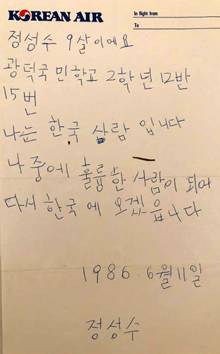 KOREAN AIR
In flight from
To
정성수 9살이에요
광덕국민학교 2학년 12반
15번
나는 한국 살람 입니다
나중에 훌륭한 사람이 되어
다시 한국에 오겠읍니다
1986. 6월 11일
정성수